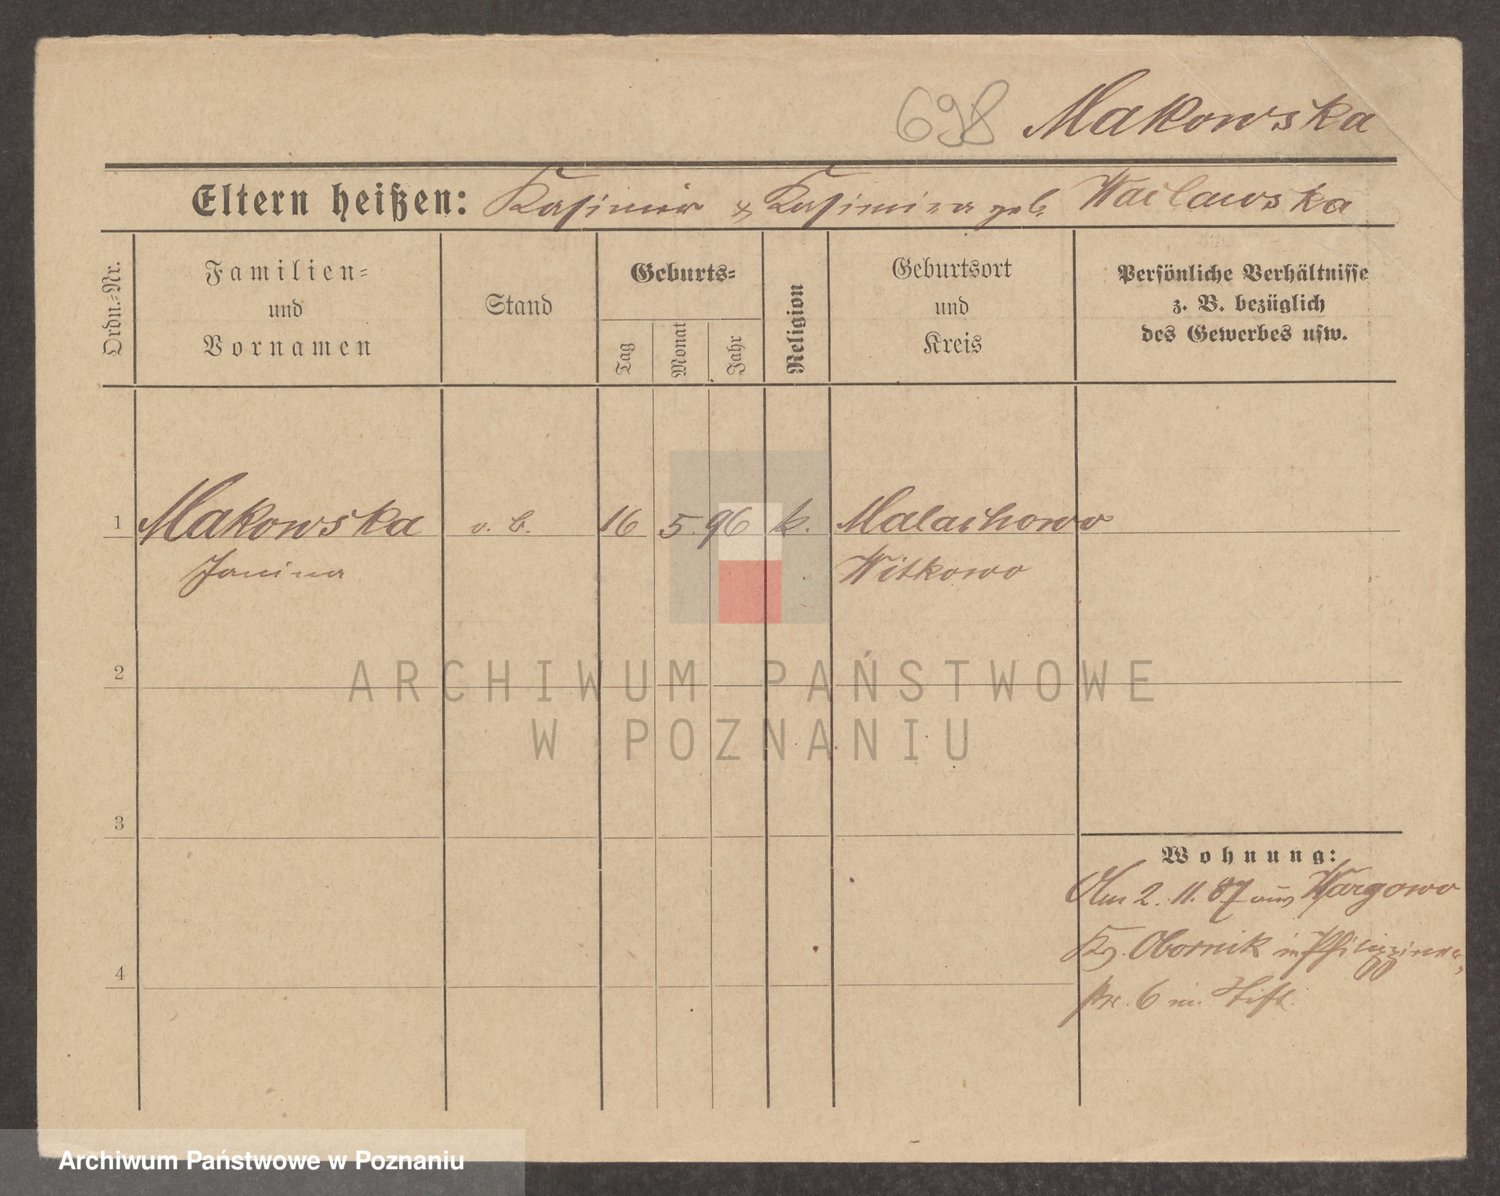 698 Makowska
Eltern heißen: Kasimir & Kasimira geb. Waclawska
Ordn.=Nr.
Familien=
und
Vornamen
Stand
Geburts=
Tag
Monat
Jahr
Religion
Geburtsort
und
Kreis
Persönliche Verhältnisse
z. B. bezüglich
des Gewerbes usw.
1 Makowska o. b. 16 5. 96 k. Malachowo
Janina Witkowo
2
ARCHIWUM PAŃSTWOWE
W POZNANIU
3
Wohnung:
Am 2. 11. 07 aus Wargowo
Kr. Obornik in
4
6 im Stift.
Archiwum Państwowe w Poznaniu